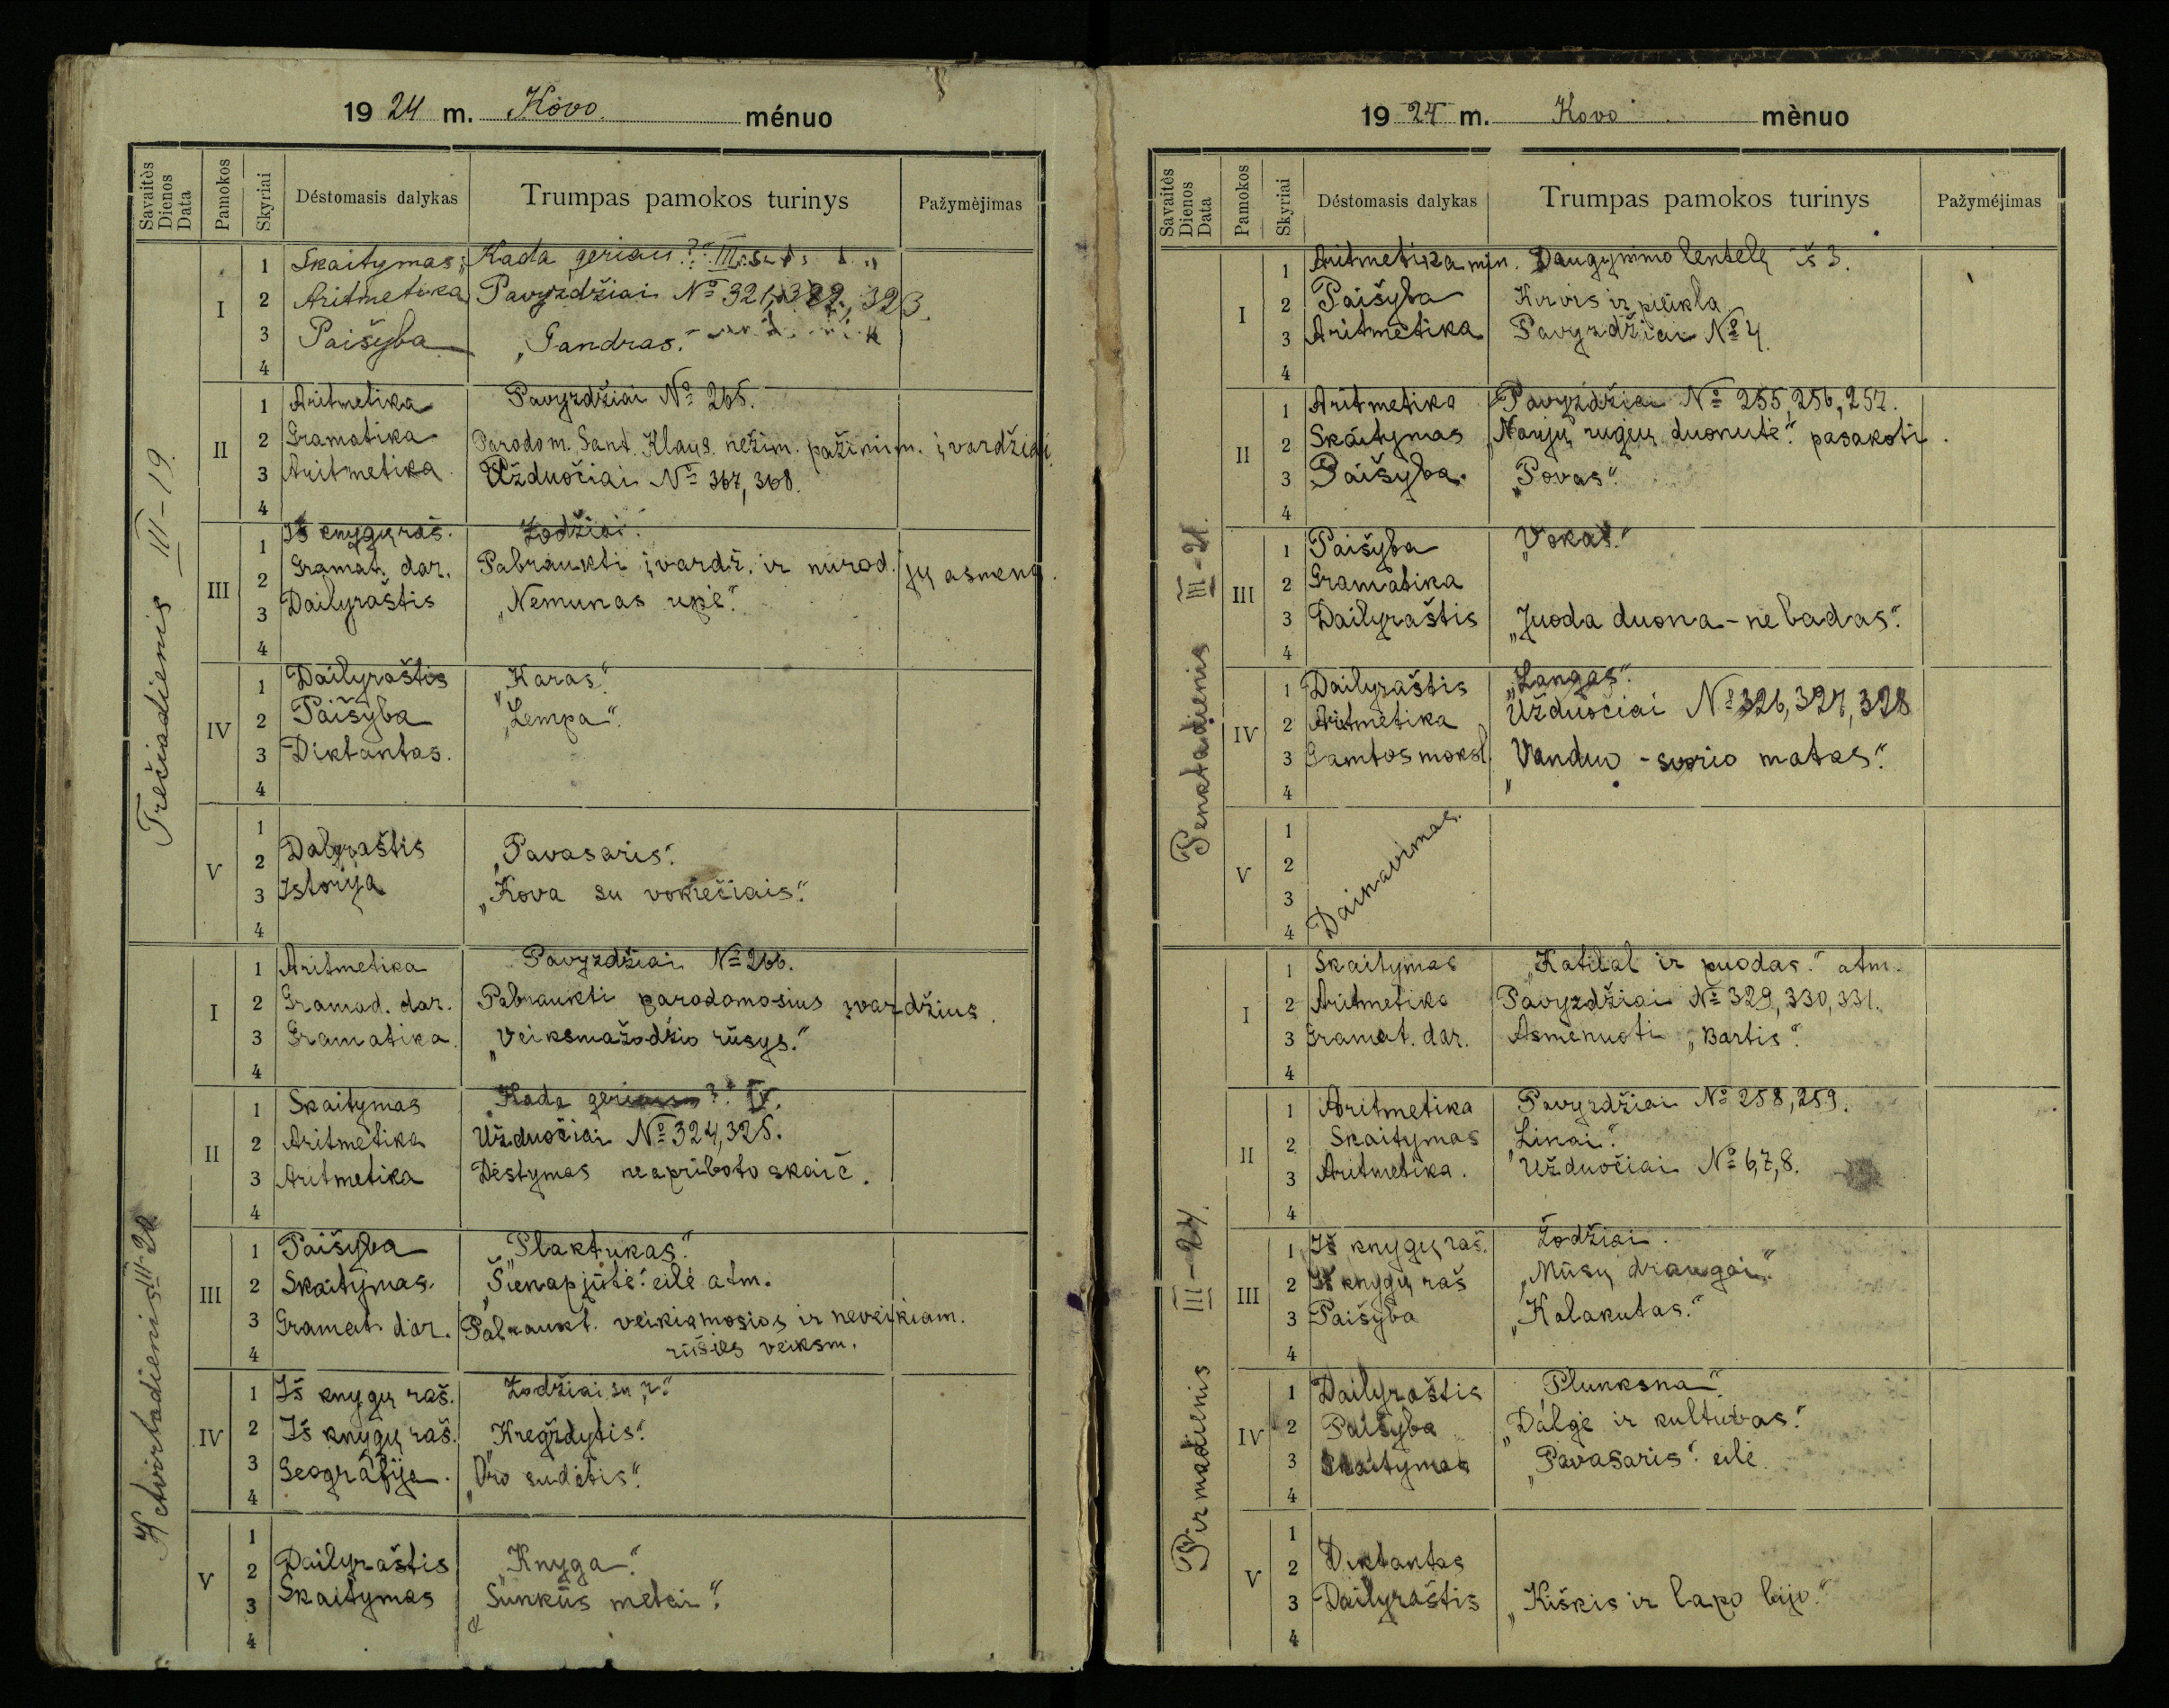 1924 m. Kovo. ménuo
Savaitès Dienos Data
Pamokos
Skyriai
Déstomasis dalykas
Trumpas pamokos turinys
Pažymėjimas
Trečiadienis III-19.
I
1 Skaitymas „Kada geriau?“ III
2 Aritmetika Pavyzdžiai № 321, 322, 323.
3 Paišyba „Gandras.“
4
II
1 Aritmetika Pavyzdžiai № 265.
2 Gramatika Parodom. Sant. Klaus. nežim. pažimim. įvardžiai
3 Aritmetika. Uždučiai № 367, 368.
4
III
1 Iš knygų raš. Žodžiai.
2 Gramat. dar. Pabraukti įvardž. ir nurod. jų asmenį.
3 Dailyraštis „Nemunas upė.“
4
IV
1 Dailyraštis „Karas.“
2 Paišyba „Lempa“.
3 Diktantas.
4
V
1
2 Dalyraštis „Pavasaris“.
3 Istorija „Kova su vokiečiais.“
4
Ketvirtadienis III-20
I
1 Aritmetika Pavyzdžiai № 266.
2 Gramad. dar. Pabraukti parodomosius įvardžius.
3 Gramatika. „Veiksmažodžio rūsys.“
4
II
1 Skaitymas „Kada geriau?“ IV.
2 Aritmetika Uždučiai № 324, 325.
3 Aritmetika Dėstymas neapriboto skaič.
4
III
1 Paišyba „Plaktukas.“
2 Skaitymas. „Šienapjūtė“ eilė atm.
3 Gramat. dar. Pabraukt. veikiamosios ir neveikiam.
4 rūšies veiksm.
IV
1 Iš knygų raš. Žodžiai su „z“
2 Iš knygų raš. „Kregždytis“.
3 Geografija. „Oro sudėtis“.
4
V
1
2 Dailyraštis „Knyga“.
3 Skaitymas „Sunkūs metai“.
4
1924 m. Kovo mènuo
Savaitès Dienos Data
Pamokos
Skyriai
Déstomasis dalykas
Trumpas pamokos turinys
Pažyméjimas
Penktadienis III-21.
I
1 Aritmetika min. Daugynimo lentelę iš 3.
2 Paišyba Kirvis ir piūkla
3 Aritmetika Pavyzdžiai № 4
4
II
1 Aritmetika Pavyzdžiai № 255, 256, 257.
2 Skaitymas „Naujų rugių duonutė“ pasakoti.
3 Paišyba. „Povas“.
4
III
1 Paišyba „Vokas.“
2 Gramatika
3 Dailyraštis „Juoda duona - ne badas“.
4
IV
1 Dailyraštis „Langas“.
2 Aritmetika Uždučiai № 326, 327, 328
3 Gamtos moksl. „Vanduo - svorio matas“.
4
V
1
2
3
4
Dainavimas.
Pirmadienis III-24.
I
1 Skaitymas „Katilal ir puodas.“ atm.
2 Aritmetika Pavyzdžiai № 329, 330, 331.
3 Gramat. dar. Asmenuoti „Bartis“.
4
II
1 Aritmetika Pavyzdžiai № 258, 259.
2 Skaitymas „Linai“.
3 Aritmetika. Uždučiai № 6, 7, 8.
4
III
1 Iš knygų raš. Žodžiai.
2 Iš knygų raš „Mūsų draugai“
3 Paišyba „Kalakutas.“
4
IV
1 Dailyraštis „Plunksna“.
2 Paišyba „Dalgė ir kultuvas.“
3 Skaitymas „Pavasaris“ eilė
4
V
1
2 Diktantas
3 Dailyraštis „Kiškis ir lapo bijo.“
4